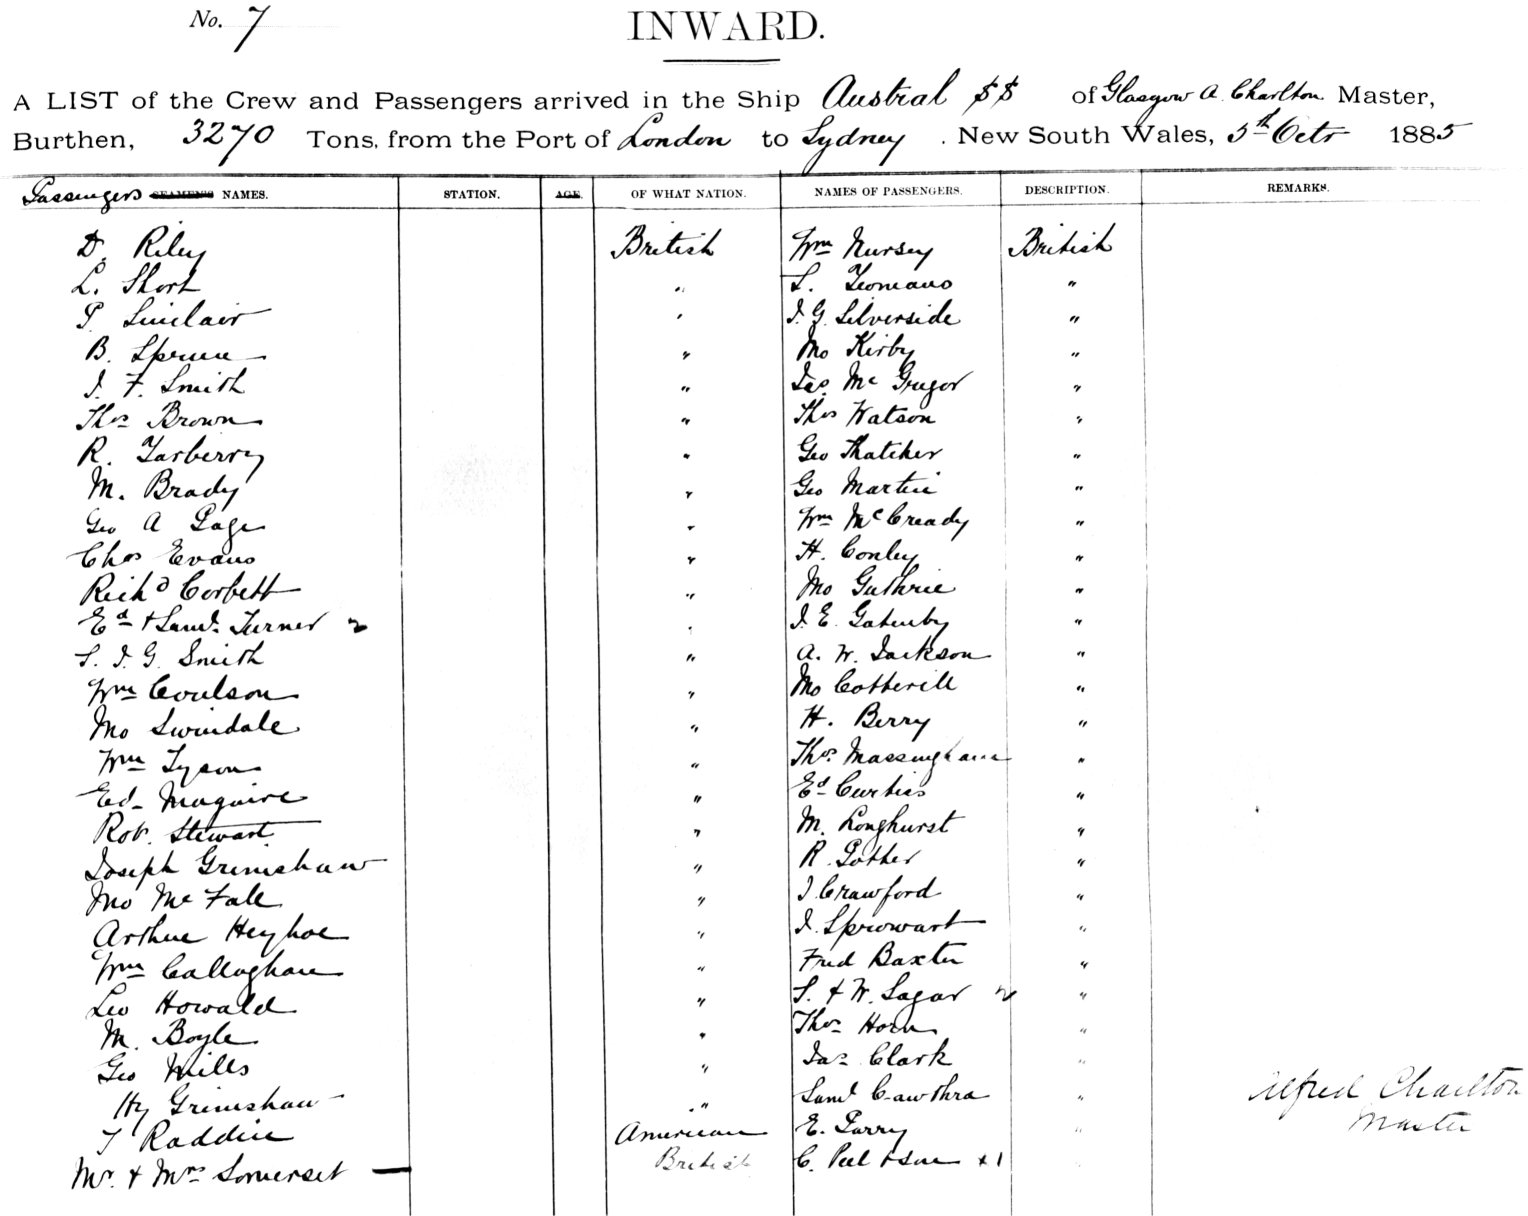 No. 7
INWARD.
A LIST of the Crew and Passengers arrived in the Ship Austral SS of Glasgow A Charlton Master,
Burthen, 3270 Tons, from the Port of London to Sydney . New South Wales, 5th Octr 1885
Passengers SEAMEN'S NAMES. STATION. AGE. OF WHAT NATION. NAMES OF PASSENGERS. DESCRIPTION. REMARKS.
D. Riley British Wm Nursey British
L. Short " S. Yeomans "
P. Sinclair " J. G. Silverside "
B. " Mo Kirby "
J. F. Smith " Jas Mc Gregor "
Thos Brown " Thos Watson "
R. Tarberry " Geo Thatcher "
M. Brady " Geo Martin "
Geo A Page " Wm McCready "
Chas Evans " H. Conley "
Richd Corbett " Mo Guthrie "
Ed & Saml. Turner 2 " J. E. Gatenby "
S. J. G. Smith " A. W. Jackson "
Wm Coulson " Mo Cotterill "
Mo Swindale " H. Berry "
Wm Tyson " Thos. Massingham "
Ed- Maguire " Ed Curtis "
Rob. Stewart " M. Longhurst "
Joseph Grimshaw " R. "
Mo Mc Fall " J Crawford "
Arthur Heyhoe " J. Sprowart "
Wm Callaghan " Fred Baxter "
Leo Howald " S. & W. Sagar 2 "
M. Boyle " Thos Horn "
Geo Mills " Jas Clark "
Hy Grimshaw " Saml Cawthra "
T Raddin American E. Parry "
Mr. & Mrs Somerset — British C. Peel & Son + 1
Alfred Charlton
Master